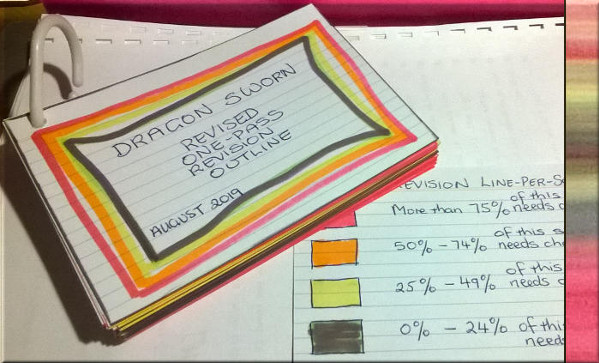 DRAGON SWORN
REVISED
ONE-PASS
REVISION
OUTLINE
AUGUST 2019
REVISION LINE-PER-S
More than 75% of this needs
50% - 74% of this s needs ch
25% - 49% of this needs
0% - 24% of this need